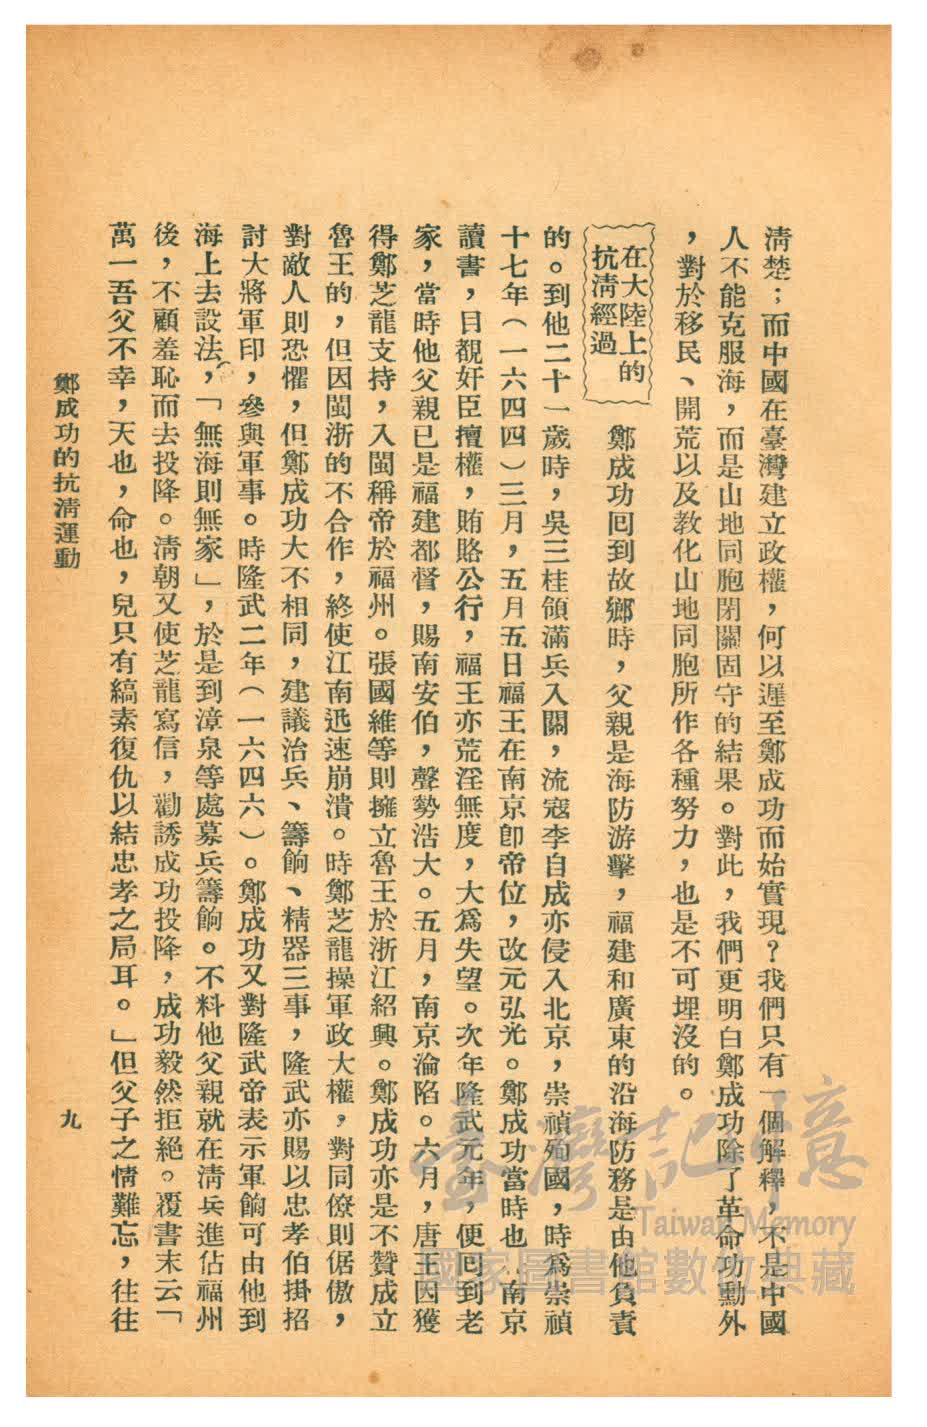 清楚；而中國在臺灣建立政權，何以遲至鄭成功而始實現？我們只有一個解釋，不是中國
人不能克服海，而是山地同胞閉關固守的結果。對此，我們更明白鄭成功除了革命功勳外
，對於移民、開荒以及敎化山地同胞所作各種努力，也是不可埋沒的。
在大陸上的
抗清經過
鄭成功囘到故鄕時，父親是海防游擊，福建和廣東的沿海防務是由他負責
的。到他二十一歲時，吳三桂領滿兵入關，流寇李自成亦侵入北京，崇禎殉國，時爲崇禎
十七年（一六四四）三月，五月五日福王在南京卽帝位，改元弘光。鄭成功當時也 南京
讀書，目覩奸臣擅權，賄賂公行，福王亦荒淫無度，大爲失望。次年隆武元年，便囘到老
家，當時他父親已是福建都督，賜南安伯，聲勢浩大。五月，南京淪陷。六月，唐王因獲
得鄭芝龍支持，入閩稱帝於福州。張國維等則擁立魯王於浙江紹興。鄭成功亦是不贊成立
魯王的，但因閩浙的不合作，終使江南迅速崩潰。時鄭芝龍操軍政大權，對同僚則倨傲，
對敵人則恐懼，但鄭成功大不相同，建議治兵、籌餉、精器三事，隆武亦賜以忠孝伯掛招
討大將軍印，參與軍事。時隆武二年（一六四六）。鄭成功又對隆武帝表示軍餉可由他到
海上去設法，「無海則無家」，於是到漳泉等處募兵籌餉。不料他父親就在淸兵進佔福州
後，不顧羞恥而去投降。淸朝又使芝龍寫信，勸誘成功投降，成功毅然拒絕。覆書末云「
萬一吾父不幸，天也，命也，兒只有縞素復仇以結忠孝之局耳。」但父子之情難忘，往往
鄭成功的抗淸運動
九
臺灣記憶
Taiwan Memory
國家圖書館數位典藏